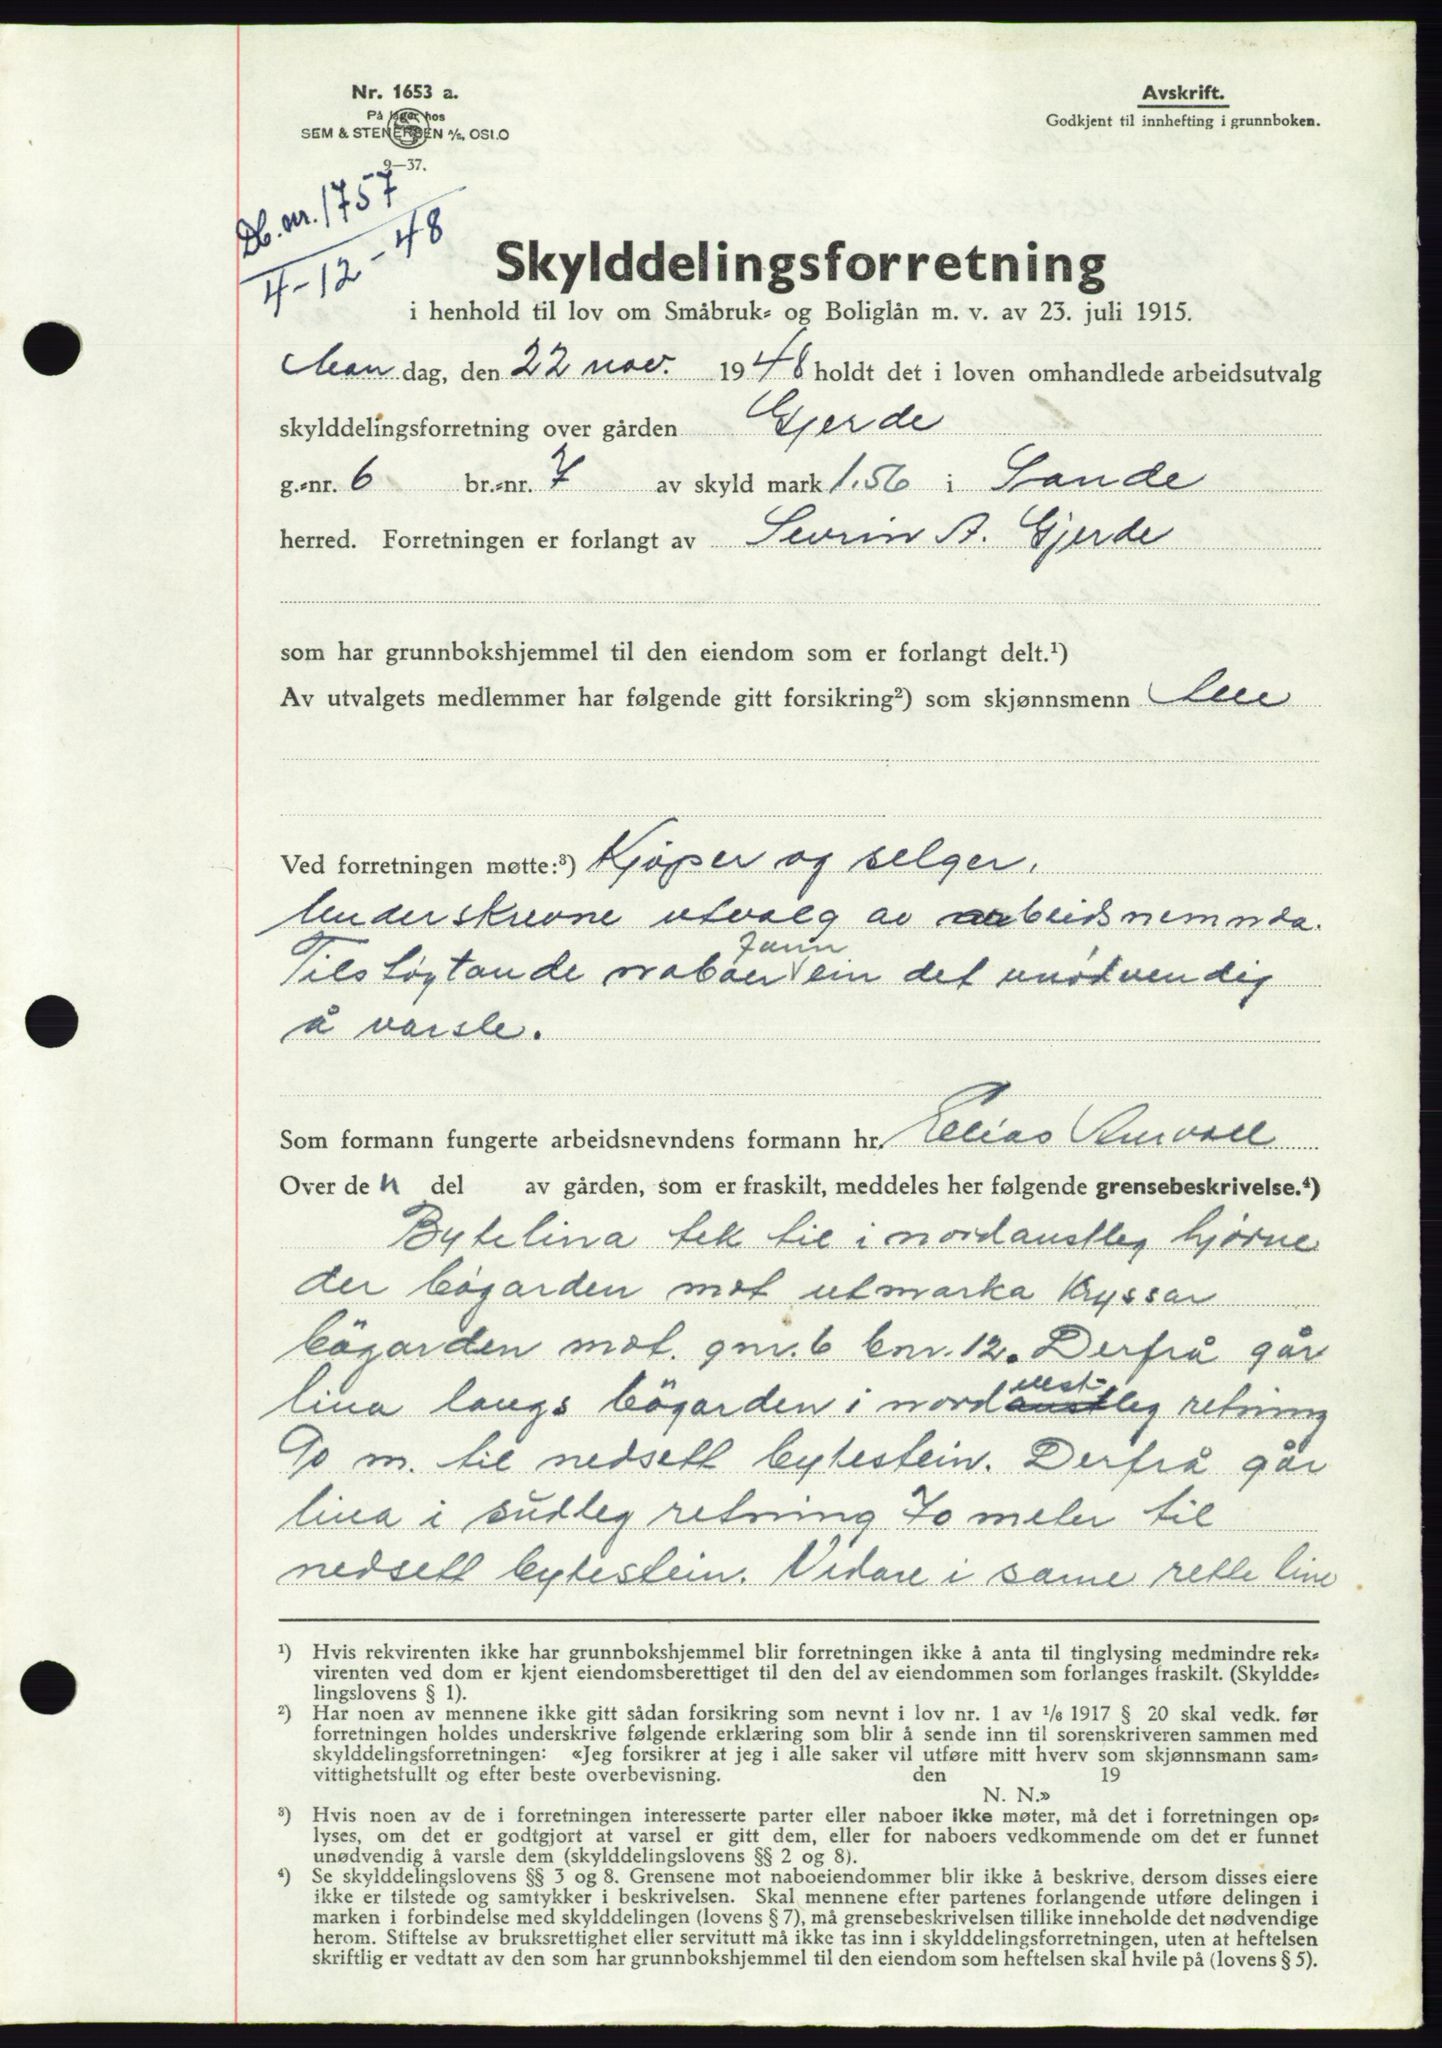 Nr. 1653 a.
På lager hos
SEM & STENERSEN A/S, OSLO
9—37.
Avskrift.
Godkjent til innhefting i grunnboken.
Db. nr. 1757
4-12-48
Skylddelingsforretning
i henhold til lov om Småbruk- og Boliglån m. v. av 23. juli 1915.
Man dag, den 22 nov. 1948 holdt det i loven omhandlede arbeidsutvalg
skylddelingsforretning over gården Gjerde
g.-nr. 6 br.-nr. 7 av skyld mark 1.56 i Sande
herred. Forretningen er forlangt av Sevrin A. Gjerde
som har grunnbokshjemmel til den eiendom som er forlangt delt.¹)
Av utvalgets medlemmer har følgende gitt forsikring²) som skjønnsmenn
Ved forretningen møtte:³) Kjøper og selger.
Underskrevne utvalg av arbeidsnemnda.
Tilstøytande naboer fann ein det unødvendig
å varsle.
Som formann fungerte arbeidsnevndens formann hr. Elias
Over den del av gården, som er fraskilt, meddeles her følgende grensebeskrivelse.⁴)
Bytelina tek til i nordaustleg hjørne
der bøgarden mot utmarka kryssar
bøgarden mot gnr. 6 bnr. 12. Derfrå går
lina langs bøgarden i nordvestleg retning
90 m. til nedsett bytestein. Derfrå går
lina i sudleg retning 70 meter til
nedsett bytestein. Vidare i same rette line
¹) Hvis rekvirenten ikke har grunnbokshjemmel blir forretningen ikke å anta til tinglysing medmindre rek-
virenten ved dom er kjent eiendomsberettiget til den del av eiendommen som forlanges fraskilt. (Skyldde-
lingslovens § 1).
²) Har noen av mennene ikke gitt sådan forsikring som nevnt i lov nr. 1 av 1/6 1917 § 20 skal vedk. før
forretningen holdes underskrive følgende erklæring som blir å sende inn til sorenskriveren sammen med
skylddelingsforretningen: «Jeg forsikrer at jeg i alle saker vil utføre mitt hverv som skjønnsmann sam-
vittighetsfullt og efter beste overbevisning. den 19
N. N.»
³) Hvis noen av de i forretningen interesserte parter eller naboer ikke møter, må det i forretningen op-
lyses, om det er godtgjort at varsel er gitt dem, eller for naboers vedkommende om det er funnet
unødvendig å varsle dem (skylddelingslovens §§ 2 og 8).
⁴) Se skylddelingslovens §§ 3 og 8. Grensene mot naboeiendommer blir ikke å beskrive, dersom disses eiere
ikke er tilstede og samtykker i beskrivelsen. Skal mennene efter partenes forlangende utføre delingen i
marken i forbindelse med skylddelingen (lovens § 7), må grensebeskrivelsen tillike inneholde det nødvendige
herom. Stiftelse av bruksrettighet eller servitutt må ikke tas inn i skylddelingsforretningen, uten at heftelsen
skriftlig er vedtatt av den som har grunnbokshjemmel til den eiendom som heftelsen skal hvile på (lovens § 5).